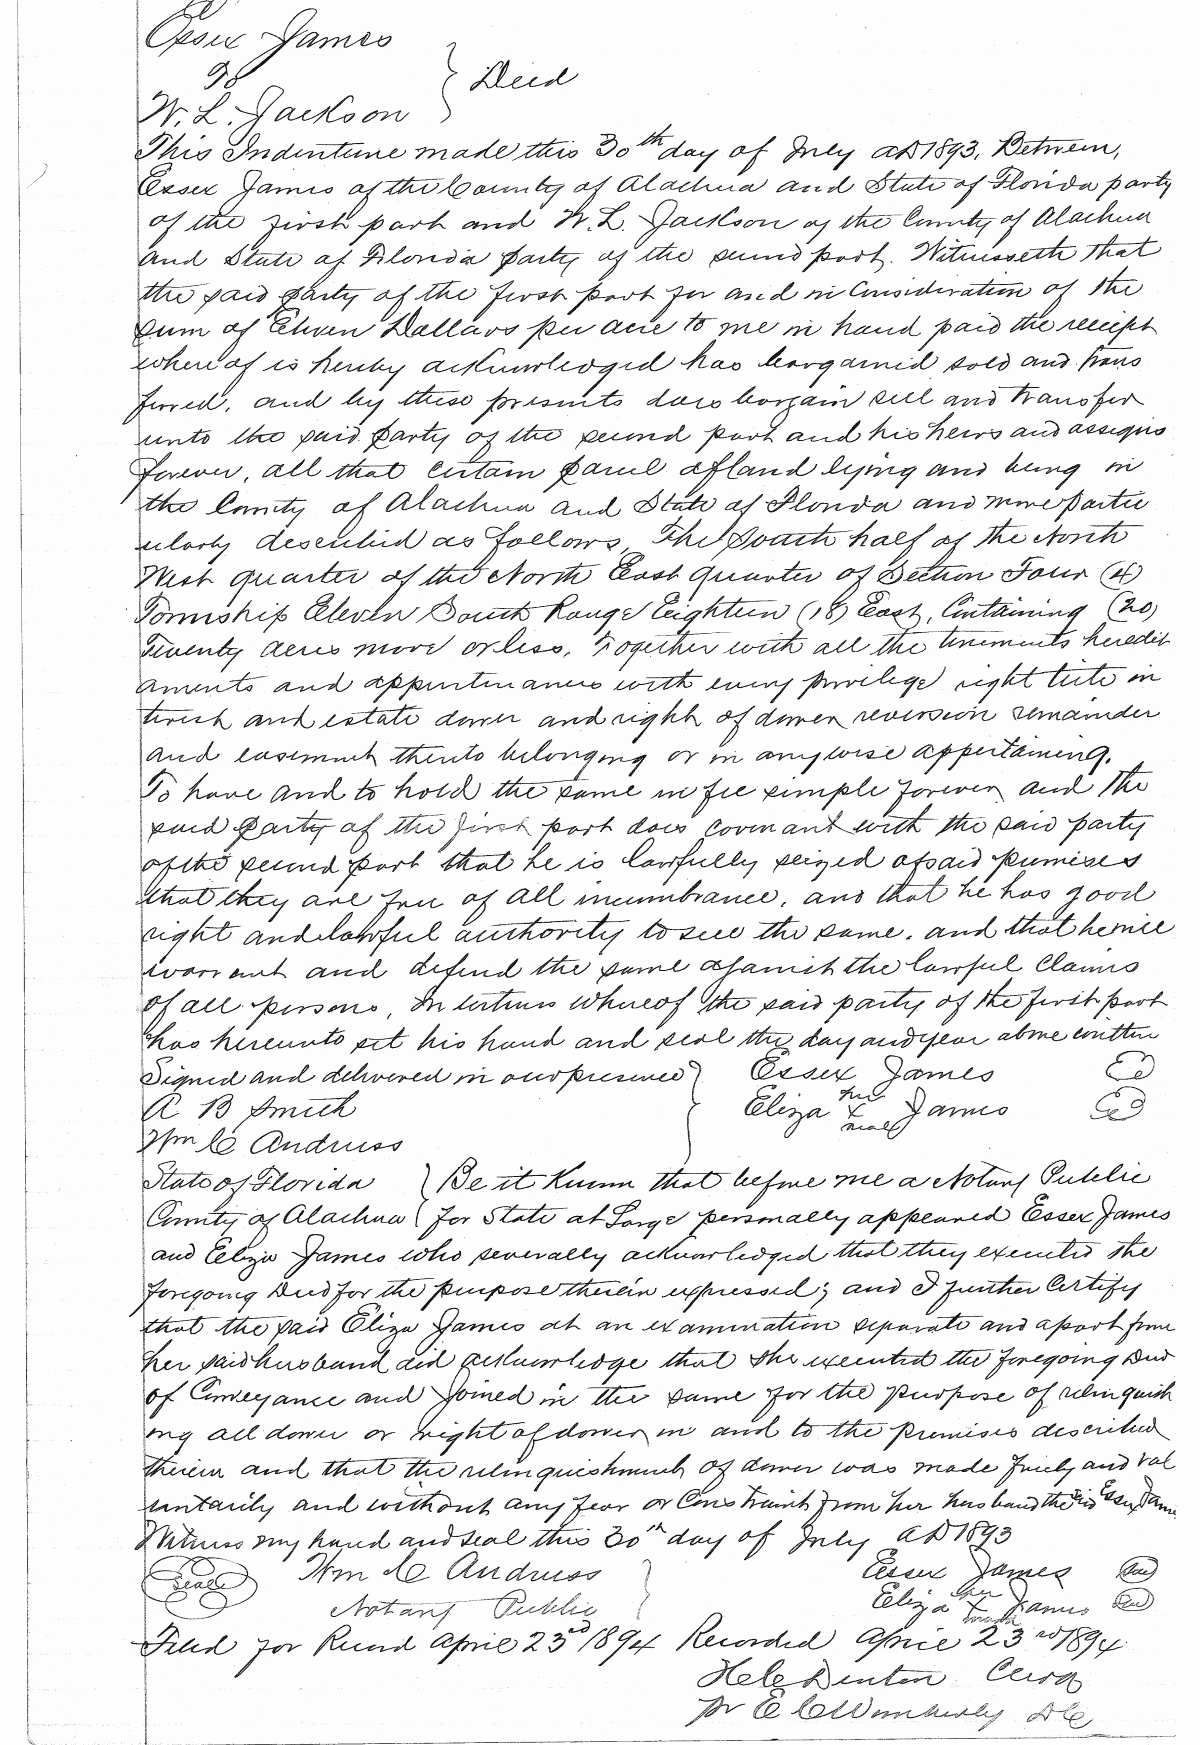 Essex James
To } Deed
W. L. Jackson
This Indenture made this 30th day of July AD 1893, Between,
Essex James of the County of Alachua and State of Florida party
of the first part and W. L. Jackson of the County of Alachua
and State of Florida party of the second part. Witnesseth that
the said party of the first part for and in Consideration of the
sum of Eleven Dollars per acre to me in hand paid the receipt
where of is hereby acknowledged has bargained sold and trans
ferred, and by these presents does bargain sell and transfer
unto the said party of the second part and his heirs and assigns
forever, all that certain parcel of land lying and being in
the County of Alachua and State of Florida and more partic
ularly described as follows, The South half of the North
West quarter of the North East quarter of Section Four (4)
Township Eleven South Range Eighteen (18) East, Containing (20)
Twenty acres more or less. Together with all the tenements heredit
aments and appurtenances with every privilege right title in
terest and estate dower and right of dower reversion remainder
and easement thereto belonging or in anywise appertaining.
To have and to hold the same in fee simple forever and the
said party of the first part does covenant with the said party
of the second part that he is lawfully seized of said premises
that they are free of all incumbrance, and that he has good
right and lawful authority to sell the same. and that he will
warrant and defend the same against the lawful claims
of all persons, In whereof the said party of the first part
has hereunto set his hand and seal the day and year above written
Signed and delivered in our presence } Essex James Seal
A B Smith Eliza her X mark James Seal
Wm C Andruss
State of Florida } Be it Known that before me a Notary Public
County of Alachua } for State at Large personally appeared Essex James
and Eliza James who severally acknowledged that they executed the
foregoing Deed for the purpose therein expressed; and I further Certify
that the said Eliza James at an examination separate and apart from
her said husband did acknowledge that she executed the foregoing Deed
of Conveyance and Joined in the same for the purpose of relinquish
ing all dower or right of dower in and to the premises described
therein and that the relinquishment of dower was made freely and vol
untarily and without any fear or Constraint from her husband the said Essex James
Witness my hand and seal this 30th day of July AD 1893
Seal Wm C Andruss Essex James Seal
Notary Public Eliza her X mark James Seal
Filed for Record April 23rd 1894 Recorded April 23rd 1894
Denton Clerk
pr E C Wimberly DC